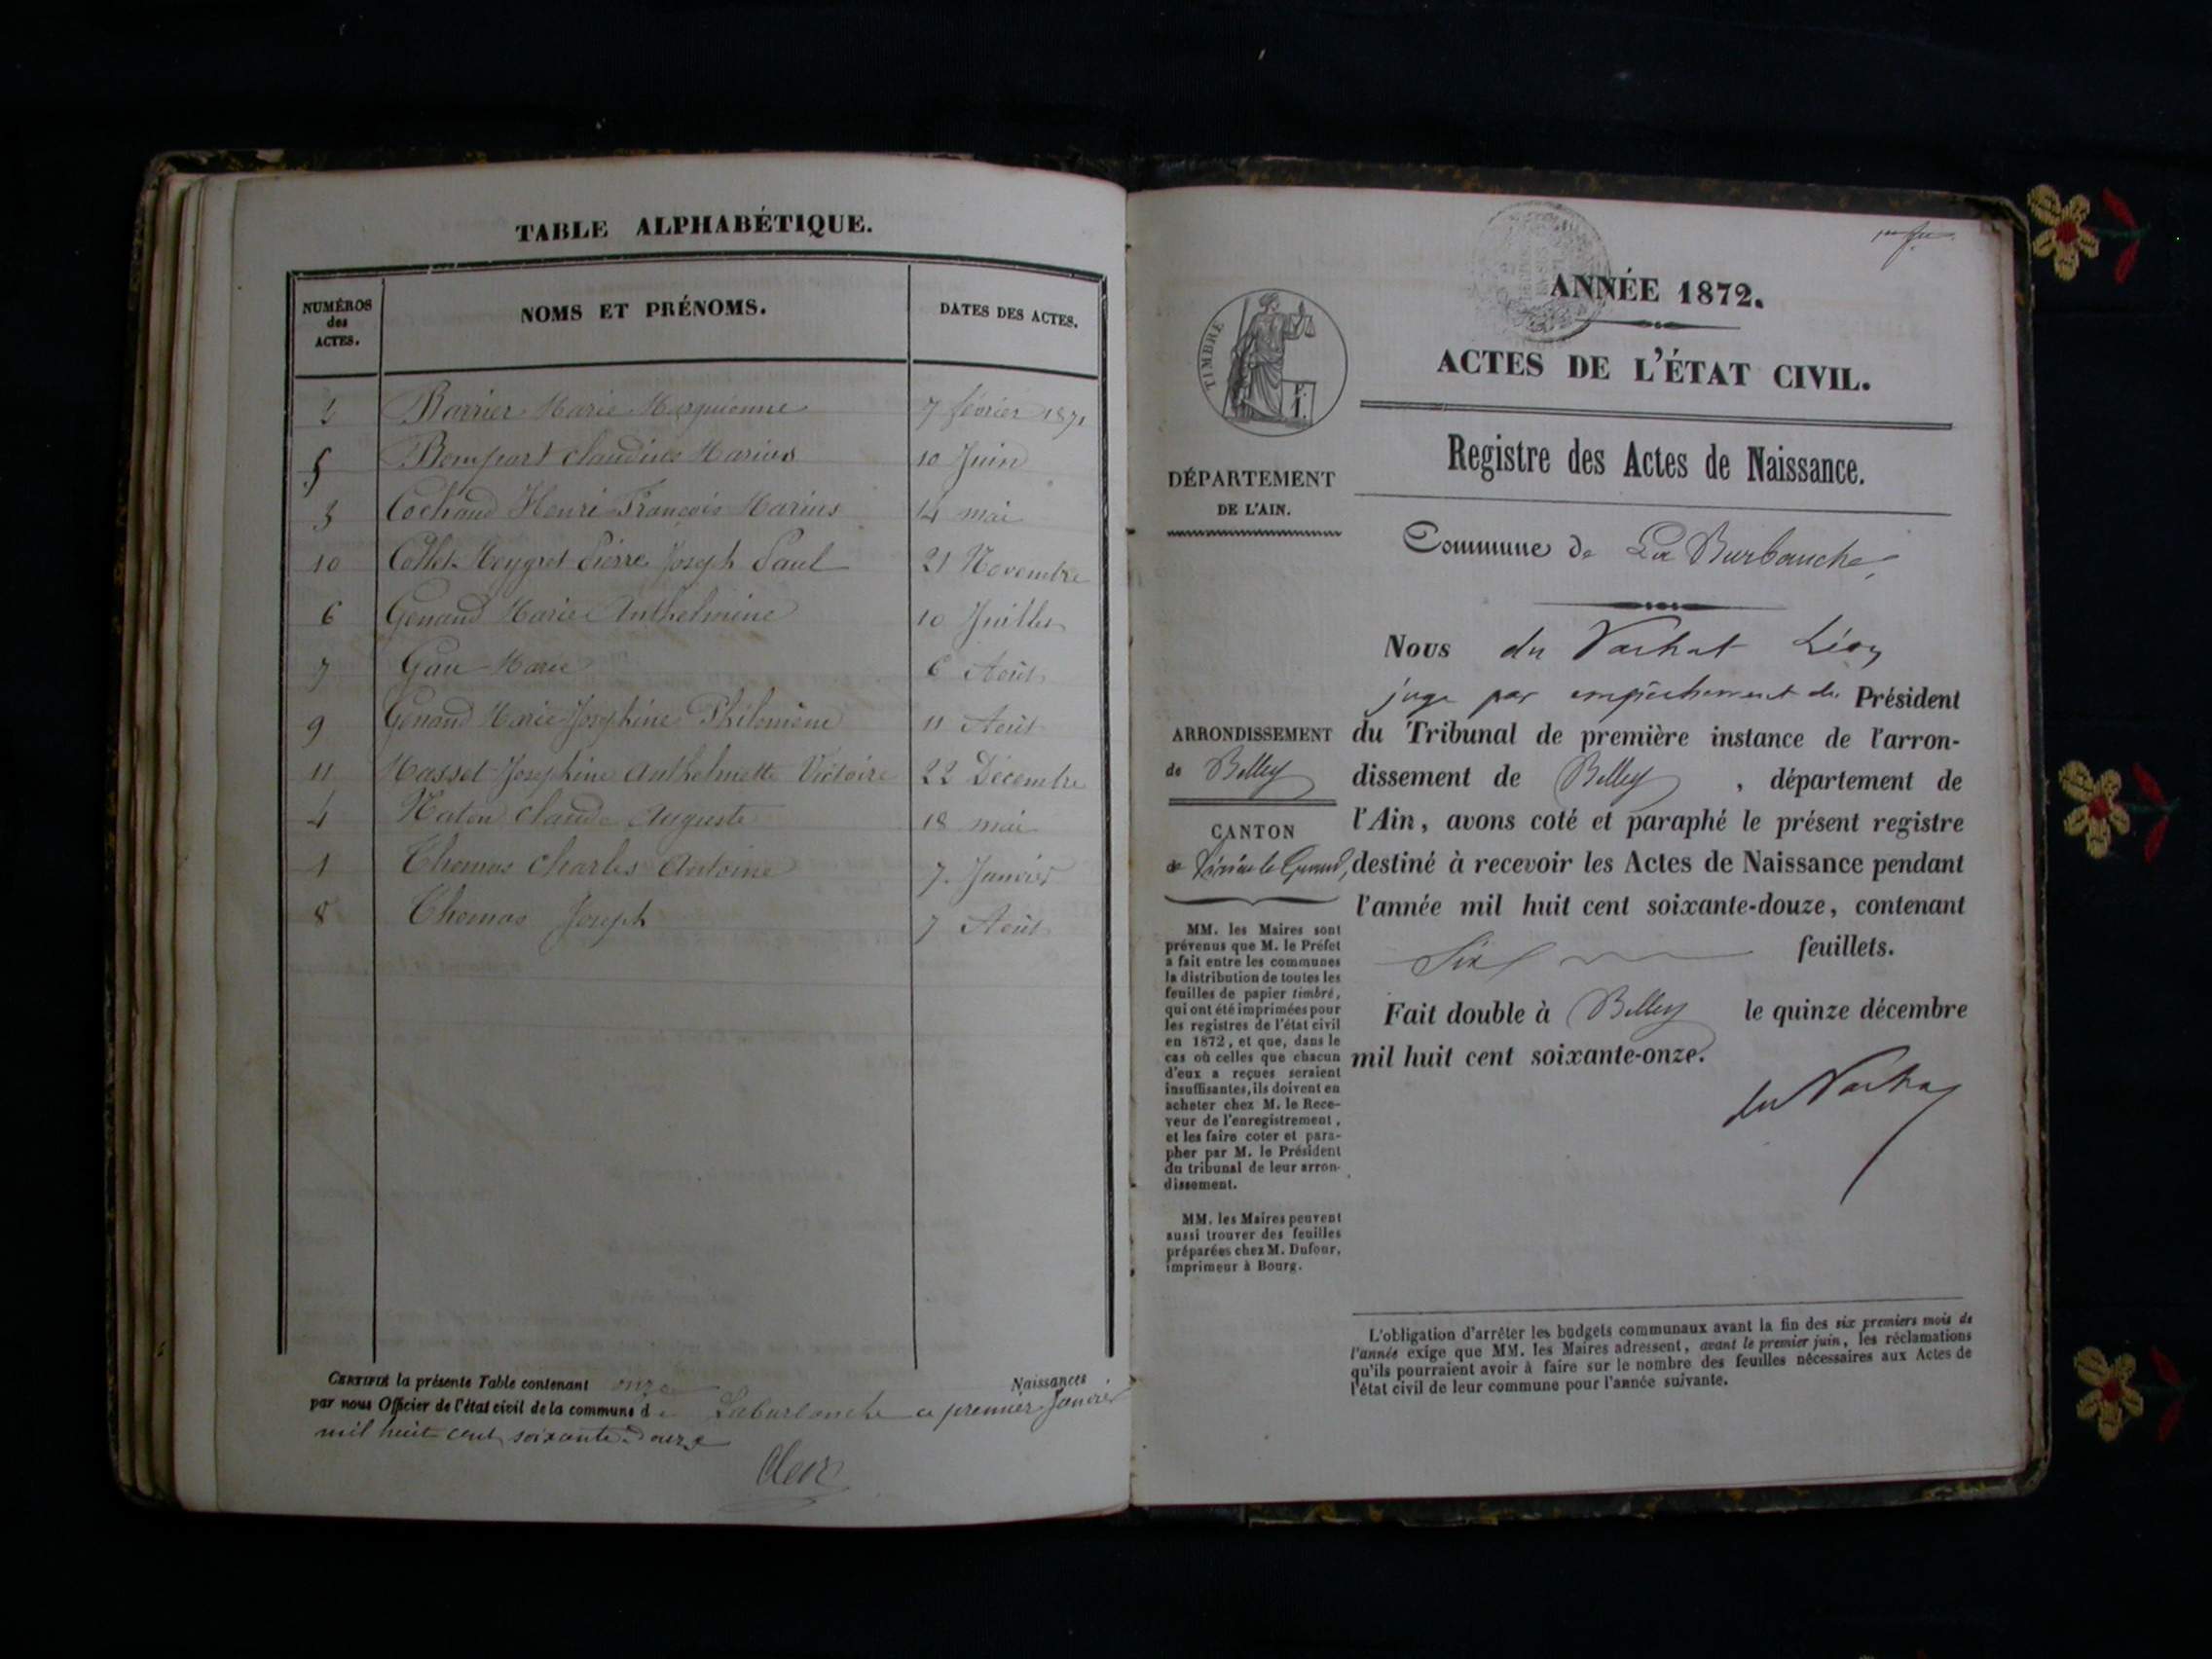 TABLE ALPHABÉTIQUE.
NUMÉROS
des
ACTES.
NOMS ET PRÉNOMS.
DATES DES ACTES.
2 Barrier Marie 7 février 1871
5 Bompart Claudius Marius 10 Juin
3 Cochand Henri François Marius 14 mai
10 Collet-Meygret Pierre Joseph Paul 21 Novembre
6 Genand Marie Anthelmine 10 Juillet
7 Marie 6 Août
9 Genand Marie Joséphine Philomène 11 Août
11 Masset Joséphine Anthelmette Victoire 22 Décembre
4 Claude Auguste 18 mai
1 Thomas Charles Antoine 7 Janvier
8 Thomas Joseph 7 Août
CERTIFIÉ la présente Table contenant onze Naissances
par nous Officier de l'état civil de la commune de Laburbanche ce premier Janvier
mil huit cent soixante-douze
TIMBRE
ANNÉE 1872.
ACTES DE L'ÉTAT CIVIL.
Registre des Actes de Naissance.
DÉPARTEMENT
DE L'AIN.
Commune de La Burbanche,
Nous du Vachat Léon
juge par empêchement du Président
du Tribunal de première instance de l'arron-
dissement de Belley, département de
l'Ain, avons coté et paraphé le présent registre
destiné à recevoir les Actes de Naissance pendant
l'année mil huit cent soixante-douze, contenant
Six feuillets.
Fait double à Belley le quinze décembre
mil huit cent soixante-onze.
du Vachat
ARRONDISSEMENT
de Belley
CANTON
de Virieu le Grand,
MM. les Maires sont
prévenus que M. le Préfet
a fait entre les communes
la distribution de toutes les
feuilles de papier timbré,
qui ont été imprimées pour
les registres de l'état civil
en 1872, et que, dans le
cas où celles que chacun
d'eux a reçues seraient
insuffisantes, ils doivent en
acheter chez M. le Rece-
veur de l'enregistrement,
et les faire coter et para-
pher par M. le Président
du tribunal de leur arron-
dissement.
MM. les Maires peuvent
aussi trouver des feuilles
préparées chez M. Dufour,
imprimeur à Bourg.
L'obligation d'arrêter les budgets communaux avant la fin des six premiers mois de
l'année exige que MM. les Maires adressent, avant le premier juin, les réclamations
qu'ils pourraient avoir à faire sur le nombre des feuilles nécessaires aux Actes de
l'état civil de leur commune pour l'année suivante.